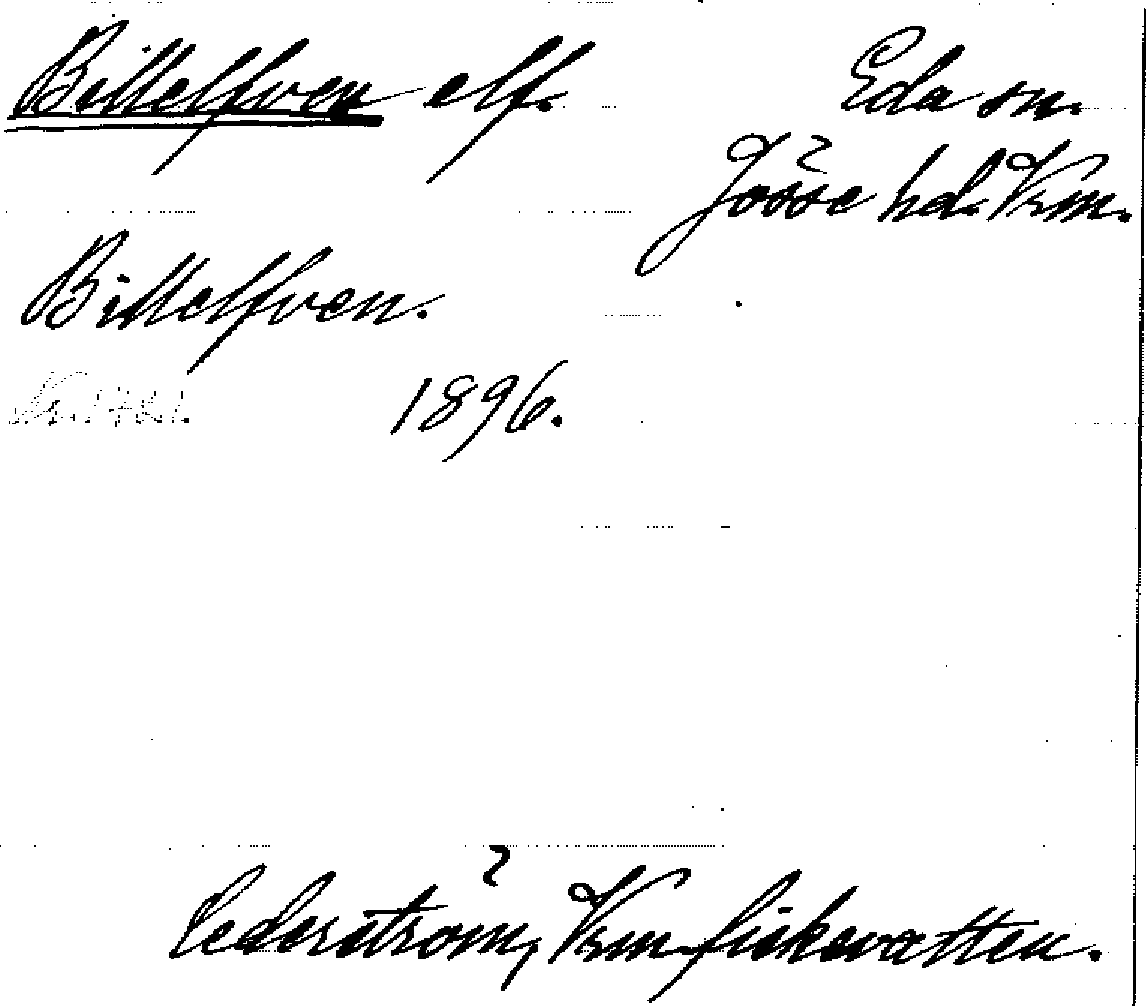 Bittelfven elf.
Eda sn.
Jösse hd. Vrm.
Bittelfven.
1896.
Cederström, Vrm fiskevatten.